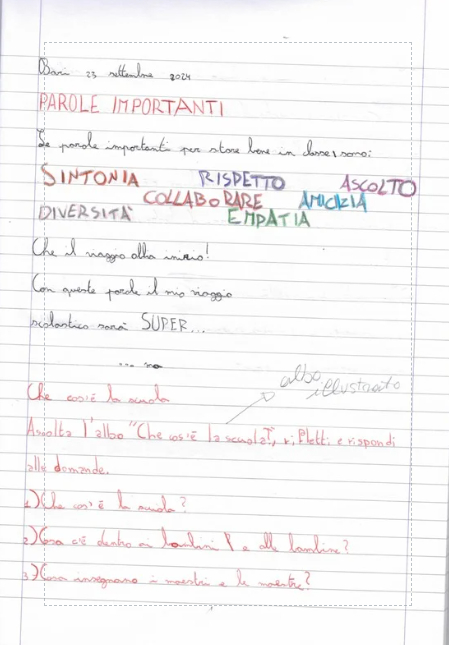 Bari 23 settembre 2024
PAROLE IMPORTANTI
Le parole importanti per stare bene in classe sono:
SINTONIA RISPETTO ASCOLTO
COLLABORARE AMICIZIA
DIVERSITÀ EMPATIA
Che il viaggio abbia inizio!
Con queste parole il mio viaggio
scolastico sarà SUPER...
albo
illustrato
Che cos'è la scuola
Ascolta l'albo "Che cos'è la scuola?", rifletti e rispondi
alle domande.
1) Che cos'è la scuola?
2) Cosa c'è dentro ai bambini e alle bambine?
3) Cosa insegnano i maestri e le maestre?